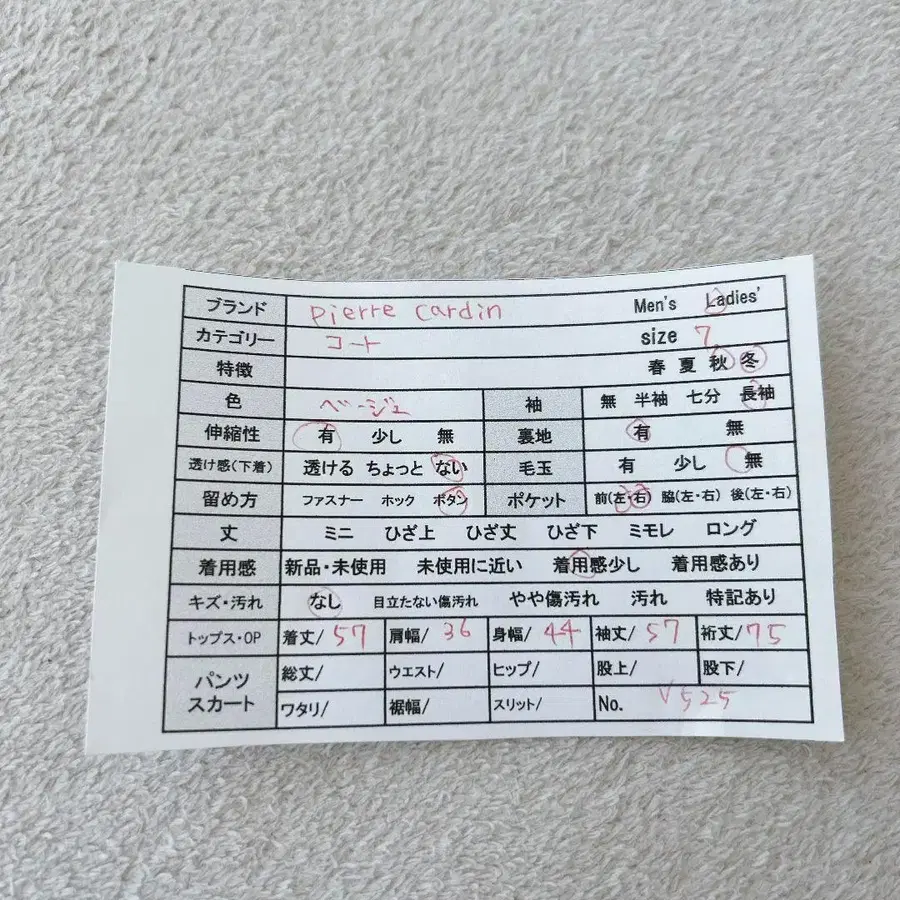 ブランド Pierre cardin Men's Ladies'
カテゴリー コート size 7
特徴 春 夏 秋 冬
色 ベージュ 袖 無 半袖 七分 長袖
伸縮性 有 少し 無 裏地 有 無
透け感(下着) 透ける ちょっと ない 毛玉 有 少し 無
留め方 ファスナー ホック ボタン ポケット 前(左・右) 脇(左・右) 後(左・右)
丈 ミニ ひざ上 ひざ丈 ひざ下 ミモレ ロング
着用感 新品・未使用 未使用に近い 着用感少し 着用感あり
キズ・汚れ なし 目立たない傷汚れ やや傷汚れ 汚れ 特記あり
トップス・OP 着丈/ 57 肩幅/ 36 身幅/ 44 袖丈/ 57 裄丈/ 75
パンツ スカート 総丈/ ウエスト/ ヒップ/ 股上/ 股下/
ワタリ/ 裾幅/ スリット/ No. V525